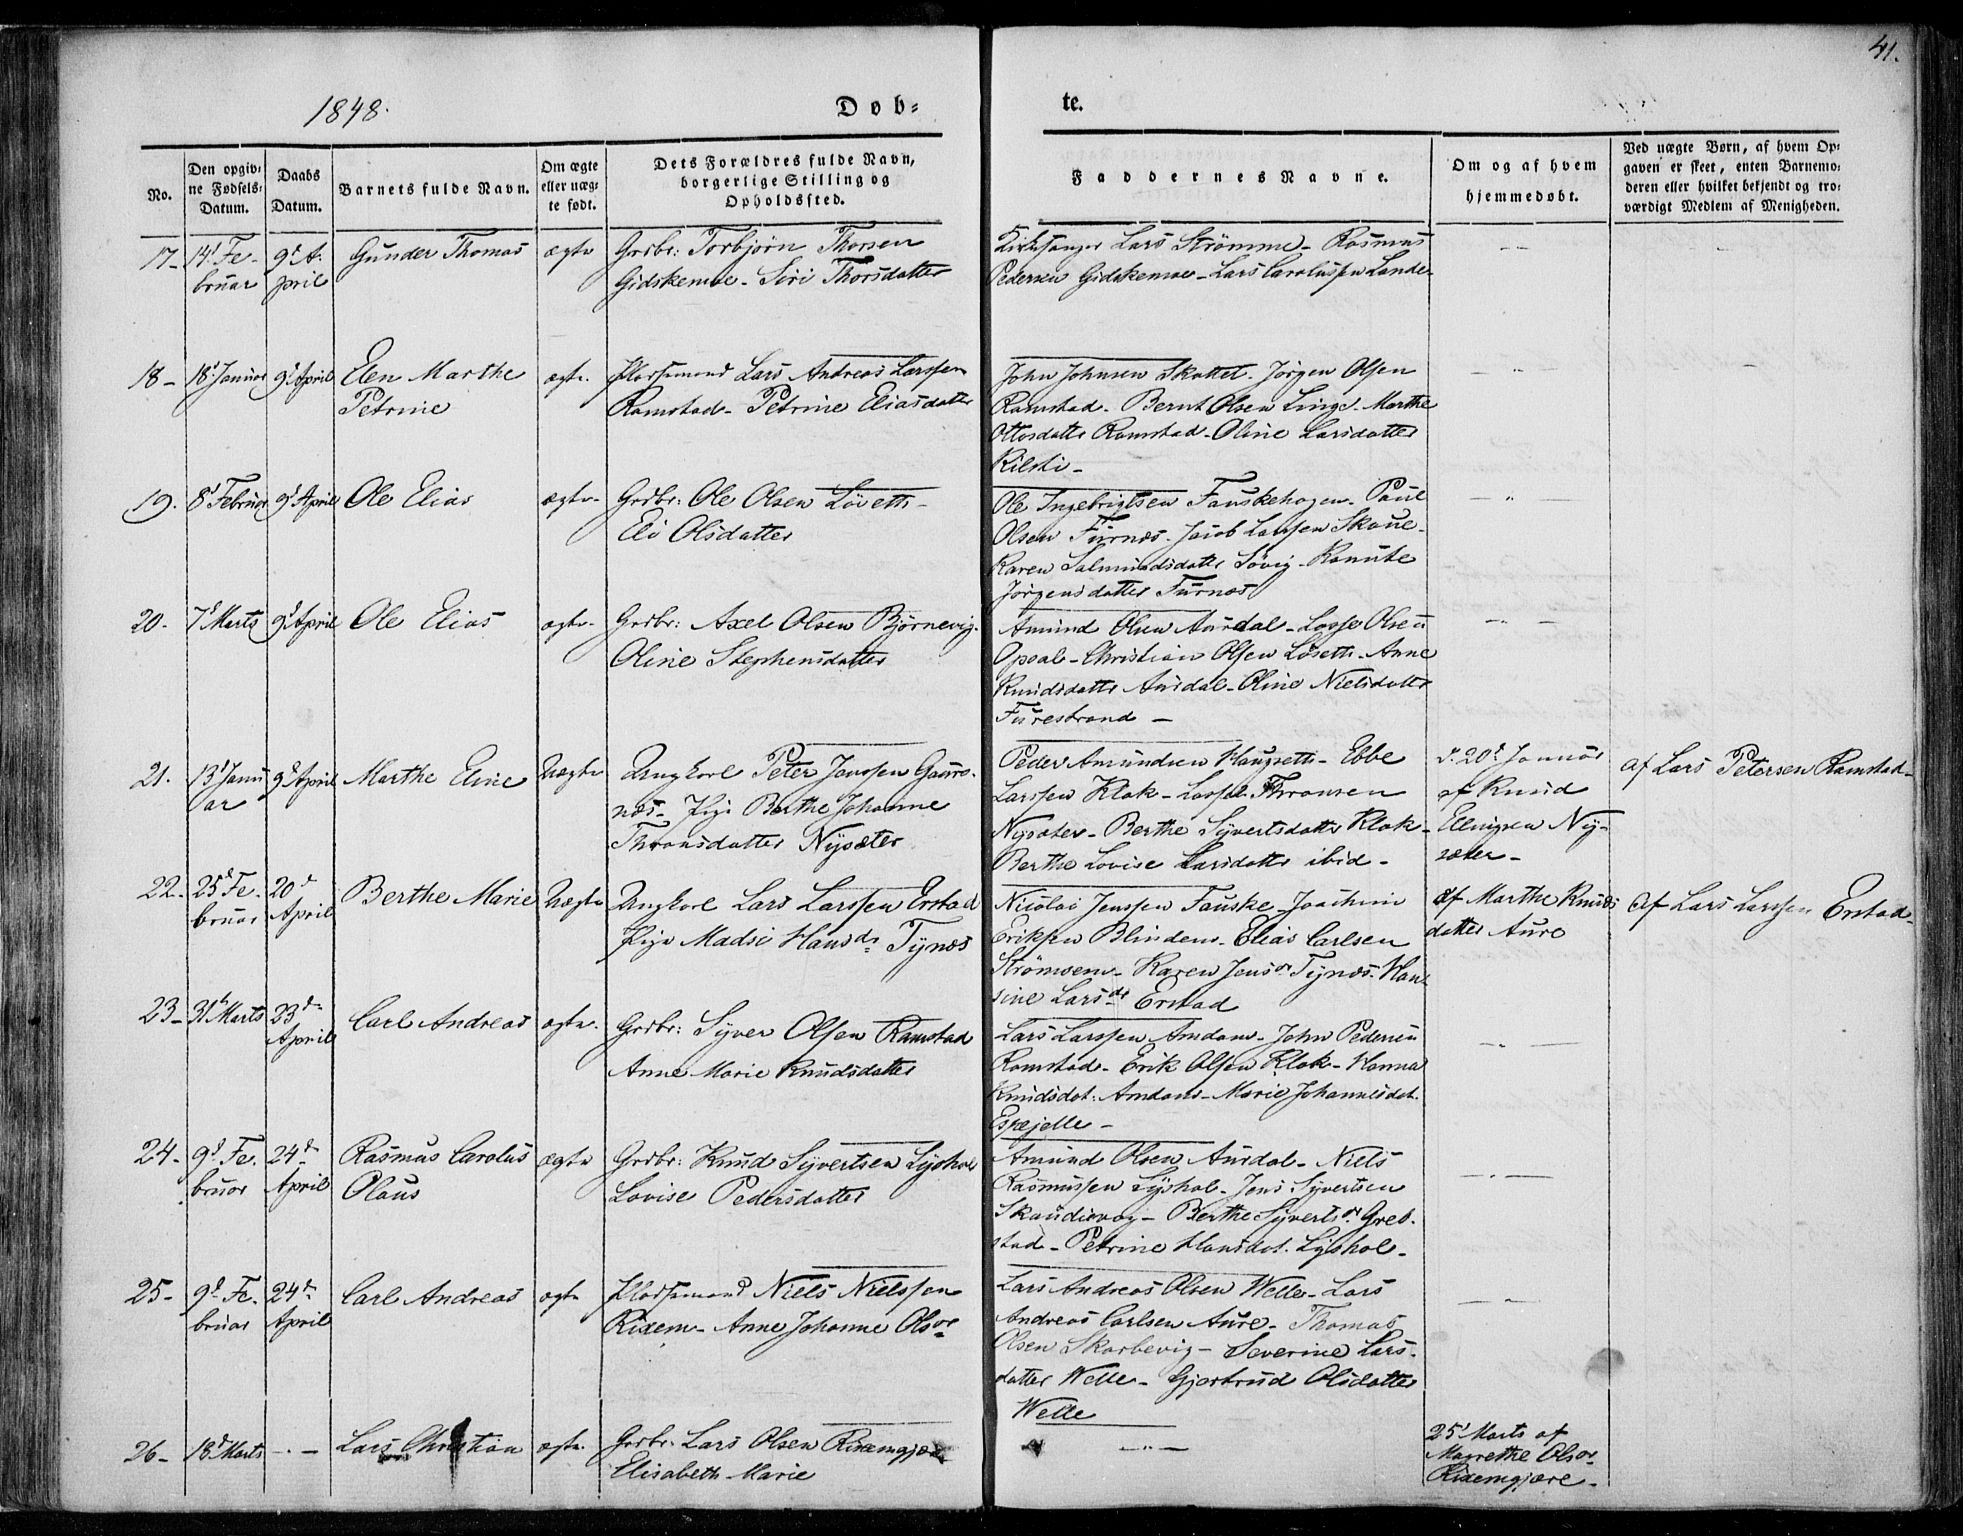 41.
1848.
Døb=
te.
No.
Den opgiv=
ne Fødsels=
Datum.
Daabs
Datum.
Barnets fulde Navn.
Om ægte
eller uæg=
te født.
Dets Forældres fulde Navn,
borgerlige Stilling og
Opholdssted.
Faddernes Navne.
Om og af hvem
hjemmedøbt.
Ved uægte Børn, af hvem Op=
gaven er skeet, enten Barnemo=
deren eller hvilket bekjendt og tro=
værdigt Medlem af Menigheden.
17-
14d Fe-
bruar
9d A-
pril
Gunder Thomas
ægte
Grdbr: Torbjørn Thorsen
Gidskemoe - Siri Thorsdatter
Kirkesanger Lars Strømme - Rasmus
Pedersen Gidskemoe - Lars Carolussen Lande
18-
18d Januar
9d April
Elen Marthe
Petrine
ægte.
Pladsemand Lars Andreas Larssen
Ramstad - Petrine Eliasdatter
John Johnsen Skottet - Jørgen Olsen
Ramstad - Bernt Olsen Linge - Marthe
Ottosdatter Ramstad - Oline Larsdatter
Kilsti -
19.
8d Februar
9d April
Ole Elias
ægte-
Grdbr: Ole Olsen Løseth -
Eli Olsdatter
Ole Ingebrigtsen Fauskehagen - Paul
Olsen Furnæs - Jacob Larssen Skoue -
Karen Salmundsdatter Søvig - Kanute
Jørgensdatter Furnæs
20.
7d Marts
9d April
Ole Elias
ægte-
Grdbr: Axel Olsen Bjørnevig -
Oline Stephensdatter
Amund Olsen Aursdal - Lasse Olsen
Opsal - Christian Olsen Løseth - Anne
Knudsdatter Aursdal - Oline Nielsdatter
Furestrand -
21.
13d Janu
ar
9d April
Marthe Eline
Uægte
Ungkarl Peter Jenssen Gaus-
næs - Pige Berthe Johanne
Thronsdatter Nysæter
Peder Amundsen Haugseth - Ebbe
Larssen Klok - Lasse Thronsen
Nysæter - Berthe Syvertsdatter Klok -
Berthe Lovise Larsdatter ibid -
d. 20d Januar
af Knud
Ellingsen Ny-
sæter -
af Lars Petersen Ramstad -
22.
25d Fe-
bruar
20d
April
Berthe Marie
Uægte
Ungkarl Lars Larssen Erstad
Pige Madsi Hansdr Tynæs
Nicolai Jenssen Fauske - Joachim
Eriksen Blindem - Elias Carlsen
Strømsem - Karen Jensdr Tynæs - Han-
sine Larsdr Erstad
af Marthe Knuds
datter Aure
af Lars Larssen Erstad -
23-
31te Marts
23d
April
Carl Andreas
ægte.
Grdbr: Syver Olsen Ramstad
Anne Marie Knudsdatter
Lars Larssen Amdam - John Pedersen
Ramstad - Erik Olsen Klok - Hanna
Knudsdat: Amdam - Marie Johannesdat.
Espejelle -
24-
9d Fe-
bruar
24d
April
Rasmus Carolus
Olaus
ægte
Grdbr: Knud Syvertsen Lyshol
Lovise Pedersdatter
Amund Olsen Aursdal - Niels
Rasmussen Lyshol - Jens Syvertsen
Skoudievog - Berthe Syvertsdr Greb-
stad - Petrine Hansdat. Lyshol -
25-
9d Fe-
bruar
24d
April
Carl Andreas
ægte
Pladsemand Niels Nielssen
Rixem - Anne Johanne Olsdr
Lars Andreas Olsen Welle - Lars
Andreas Carlsen Aure - Thomas
Olsen Skorbevig - Severine Lars-
datter Welle - Gjertrud Olsdatter
Welle
26-
18d Marts
Lars Christian
ægte.
Grdbr: Lars Olsen Rixemgjære
Elisabeth Marie
25d Marts af
Magrethe Olsdr
Rixemgjære -